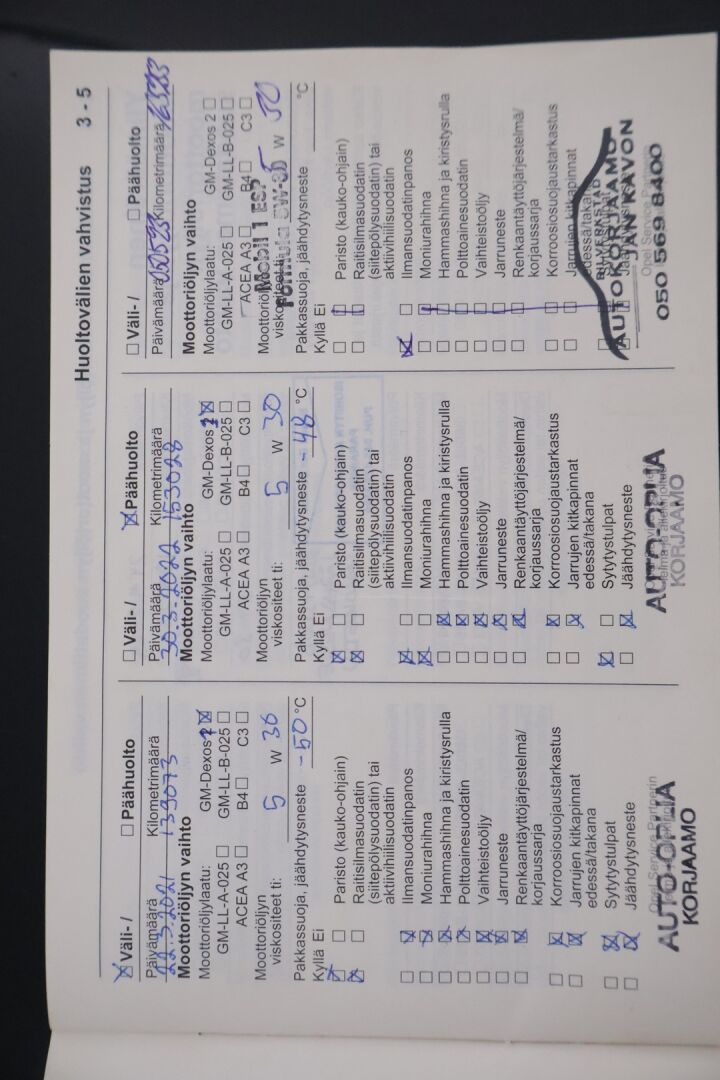 Huoltovälien vahvistus 3 - 5
☒ Väli- / ☐ Päähuolto
Päivämäärä Kilometrimäärä
22.3.2021 139073
Moottoriöljyn vaihto
Moottoriöljylaatu: GM-Dexos 2 ☒
GM-LL-A-025 ☐ GM-LL-B-025 ☐
ACEA A3 ☐ B4 ☐ C3 ☐
Moottoriöljyn
viskositeet ti: 5 W 30
Pakkassuoja, jäähdytysneste -50 °C
Kyllä Ei
☒ ☐ Paristo (kauko-ohjain)
☒ ☐ Raitisilmasuodatin
(siitepölysuodatin) tai
aktiivihiilisuodatin
☐ ☒ Ilmansuodatinpanos
☐ ☒ Moniurahihna
☐ ☒ Hammashihna ja kiristysrulla
☐ ☒ Polttoainesuodatin
☐ ☒ Vaihteistoöljy
☐ ☒ Jarruneste
☐ ☒ Renkaantäyttöjärjestelmä/
korjaussarja
☐ ☒ Korroosiosuojaustarkastus
☐ ☒ Jarrujen kitkapinnat
edessä/takana
☐ ☒ Sytytystulpat
☐ ☒ Jäähdytysneste
AUTO-OPLIA
KORJAAMO
☐ Väli- / ☒ Päähuolto
Päivämäärä Kilometrimäärä
30.3-2022 153028
Moottoriöljyn vaihto
Moottoriöljylaatu: GM-Dexos 2 ☒
GM-LL-A-025 ☐ GM-LL-B-025 ☐
ACEA A3 ☐ B4 ☐ C3 ☐
Moottoriöljyn
viskositeet ti: 5 W 30
Pakkassuoja, jäähdytysneste -48 °C
Kyllä Ei
☒ ☐ Paristo (kauko-ohjain)
☒ ☐ Raitisilmasuodatin
(siitepölysuodatin) tai
aktiivihiilisuodatin
☒ ☐ Ilmansuodatinpanos
☒ ☐ Moniurahihna
☐ ☒ Hammashihna ja kiristysrulla
☐ ☒ Polttoainesuodatin
☐ ☒ Vaihteistoöljy
☐ ☒ Jarruneste
☐ ☒ Renkaantäyttöjärjestelmä/
korjaussarja
☐ ☒ Korroosiosuojaustarkastus
☐ ☒ Jarrujen kitkapinnat
edessä/takana
☒ ☐ Sytytystulpat
☐ ☒ Jäähdytysneste
AUTO-OPLIA
KORJAAMO
☐ Väli- / ☐ Päähuolto
Päivämäärä Kilometrimäärä
050523
Moottoriöljyn vaihto
Moottoriöljylaatu: GM-Dexos 2 ☐
GM-LL-A-025 ☐ GM-LL-B-025 ☐
ACEA A3 ☐ B4 ☐ C3 ☐
Mobil 1 ESP
Formula 5W-30
viskositeet ti: 5 W 30
Pakkassuoja, jäähdytysneste °C
Kyllä Ei
☐ ☐ Paristo (kauko-ohjain)
☐ ☐ Raitisilmasuodatin
(siitepölysuodatin) tai
aktiivihiilisuodatin
☒ Ilmansuodatinpanos
☐ ☐ Moniurahihna
☐ ☐ Hammashihna ja kiristysrulla
☐ ☐ Polttoainesuodatin
☐ ☐ Vaihteistoöljy
☐ ☐ Jarruneste
☐ ☐ Renkaantäyttöjärjestelmä/
korjaussarja
☐ ☐ Korroosiosuojaustarkastus
☐ ☐ Jarrujen kitkapinnat
edessä/takana
BILVERKSTAD
AUTOKORJAAMO
JAN KAVON
050 569 8400